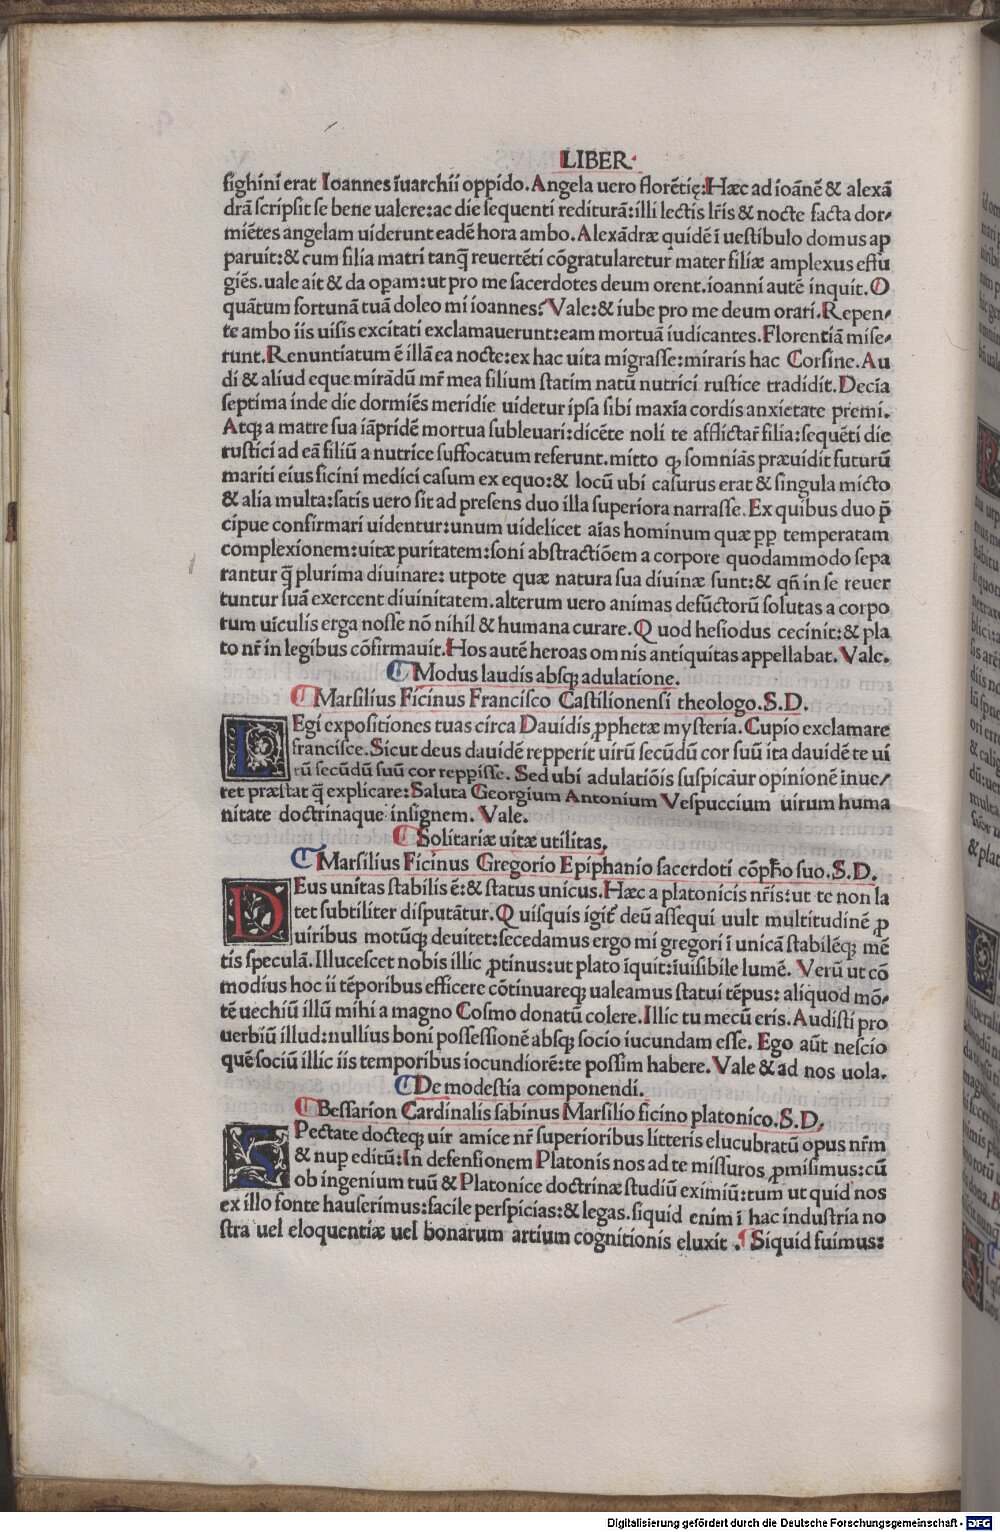 LIBER.
sighini erat Ioannes iuarchii oppido. Angela uero florẽtię: Hæc ad ioãnẽ & alexã
drã scripsit se bene ualere: ac die sequenti rediturã: illi lectis lr̃is & nocte facta dor-
miẽtes angelam uiderunt eadẽ hora ambo. Alexãdræ quidẽ ĩ uestibulo domus ap
paruit: & cum filia matri tanq̃ reuertẽti cõgratularetur mater filiæ amplexus effu
giẽs. uale ait & da opam: ut pro me sacerdotes deum orent. ioanni autẽ inquit. O
quãtum fortunã tuã doleo mi ioannes? Vale: & iube pro me deum orari. Repen-
te ambo iis uisis excitati exclamauerunt: eam mortuã iudicantes. Florentiã mise-
runt. Renuntiatum ẽ illã ea nocte: ex hac uita migrasse: miraris hac Corsine. Au
di & aliud eque mirãdũ mr̃ mea filium statim natũ nutrici rustice tradidit. Decia
septima inde die dormiẽs meridie uidetur ipsa sibi maxĩa cordis anxietate premi.
Atqꝫ a matre sua iãpridẽ mortua subleuari: dicẽte noli te afflictar̃ filia: sequẽti die
rustici ad eã filiũ a nutrice suffocatum referunt. mitto qꝫ somniãs præuidit futurũ
mariti eius ficini medici casum ex equo: & locũ ubi casurus erat & singula micto
& alia multa: satis uero sit ad presens duo illa superiora narrasse. Ex quibus duo p̃
cipue confirmari uidentur: unum uidelicet aĩas hominum quæ ꝑp temperatam
complexionem: uitæ puritatem: soni abstractiõem a corpore quodammodo sepa
rantur q̃ plurima diuinare: utpote quæ natura sua diuinæ sunt: & qñ in se reuer
tuntur suã exercent diuinitatem. alterum uero animas defũctorũ solutas a corpo
rum uĩculis erga nosse nõ nihil & humana curare. Quod hesiodus cecinit: & pla
to nr̃ in legibus cõfirmauit. Hos autẽ heroas omnis antiquitas appellabat. Vale.
Modus laudis absqꝫ adulatione.
Marsilius Ficinus Francisco Castilionensi theologo. S. D.
LEgi expositiones tuas circa Dauidis ꝓphetæ mysteria. Cupio exclamare
francisce. Sicut deus dauidẽ repperit uirũ secũdũ cor suũ ita dauidẽ te ui
rũ secũdũ suũ cor reppisse. Sed ubi adulatiõis suspicaur opinionẽ ĩnue-
ret præstat q̃ explicare: Saluta Georgium Antonium Vespuccium uirum huma
nitate doctrinaque insignem. Vale.
Solitariæ uitæ utilitas.
Marsilius Ficinus Gregorio Epiphanio sacerdoti cõpħo suo. S. D.
DEus unitas stabilis ẽ: & status unicus. Hæc a platonicis nr̃is: ut te non la
tet subtiliter disputãtur. Quisquis igit̃ deũ assequi uult multitudinẽ ꝓ
uiribus motũqꝫ deuitet: secedamus ergo mi gregori ĩ unicã stabilẽqꝫ mẽ
tis speculã. Illucescet nobis illic ꝓtinus: ut plato ĩquit: ĩuisibile lumẽ. Verũ ut cõ
modius hoc ii tẽporibus efficere cõtinuareqꝫ ualeamus statui tẽpus: aliquod mõ-
tẽ uechiũ illũ mihi a magno Cosmo donatũ colere. Illic tu mecũ eris. Audisti pro
uerbiũ illud: nullius boni possessionẽ absqꝫ socio iucundam esse. Ego aũt nescio
quẽ sociũ illic iis temporibus iocundiorẽ: te possim habere. Vale & ad nos uola.
De modestia componendi.
Bessarion Cardinalis sabinus Marsilio ficino platonico. S. D.
SPectate docteqꝫ uir amice nr̃ superioribus litteris elucubratũ opus nr̃m
& nup editũ: In defensionem Platonis nos ad te missuros ꝓmisimus: cũ
ob ingenium tuũ & Platonice doctrinæ studiũ eximiũ: tum ut quid nos
ex illo fonte hauserimus: facile perspicias: & legas. siquid enim ĩ hac industria no
stra uel eloquentiæ uel bonarum artium cognitionis eluxit. Siquid fuimus:
Digitalisierung gefördert durch die Deutsche Forschungsgemeinschaft - DFG